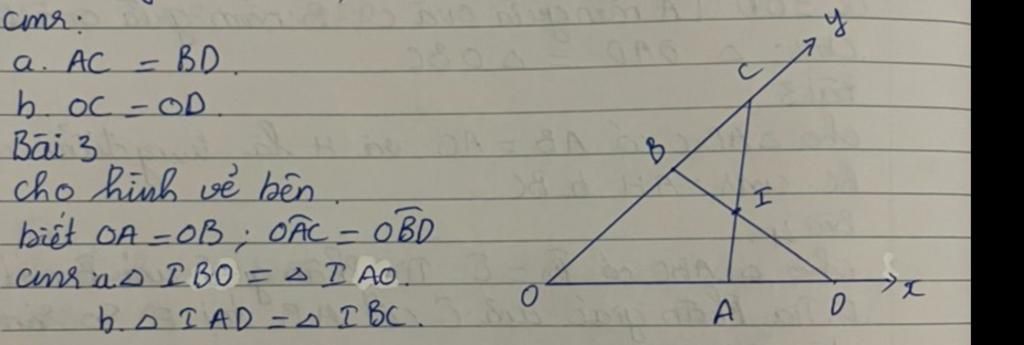 cmr:
a. AC = BD.
b. OC = OD.
Bài 3
cho hình vẽ bên.
biết OA = OB ; OAC = OBD
cmr a. △ IBO = △ IAO.
b. △ IAD = △ IBC.
y
C
B
I
O
A
D
x